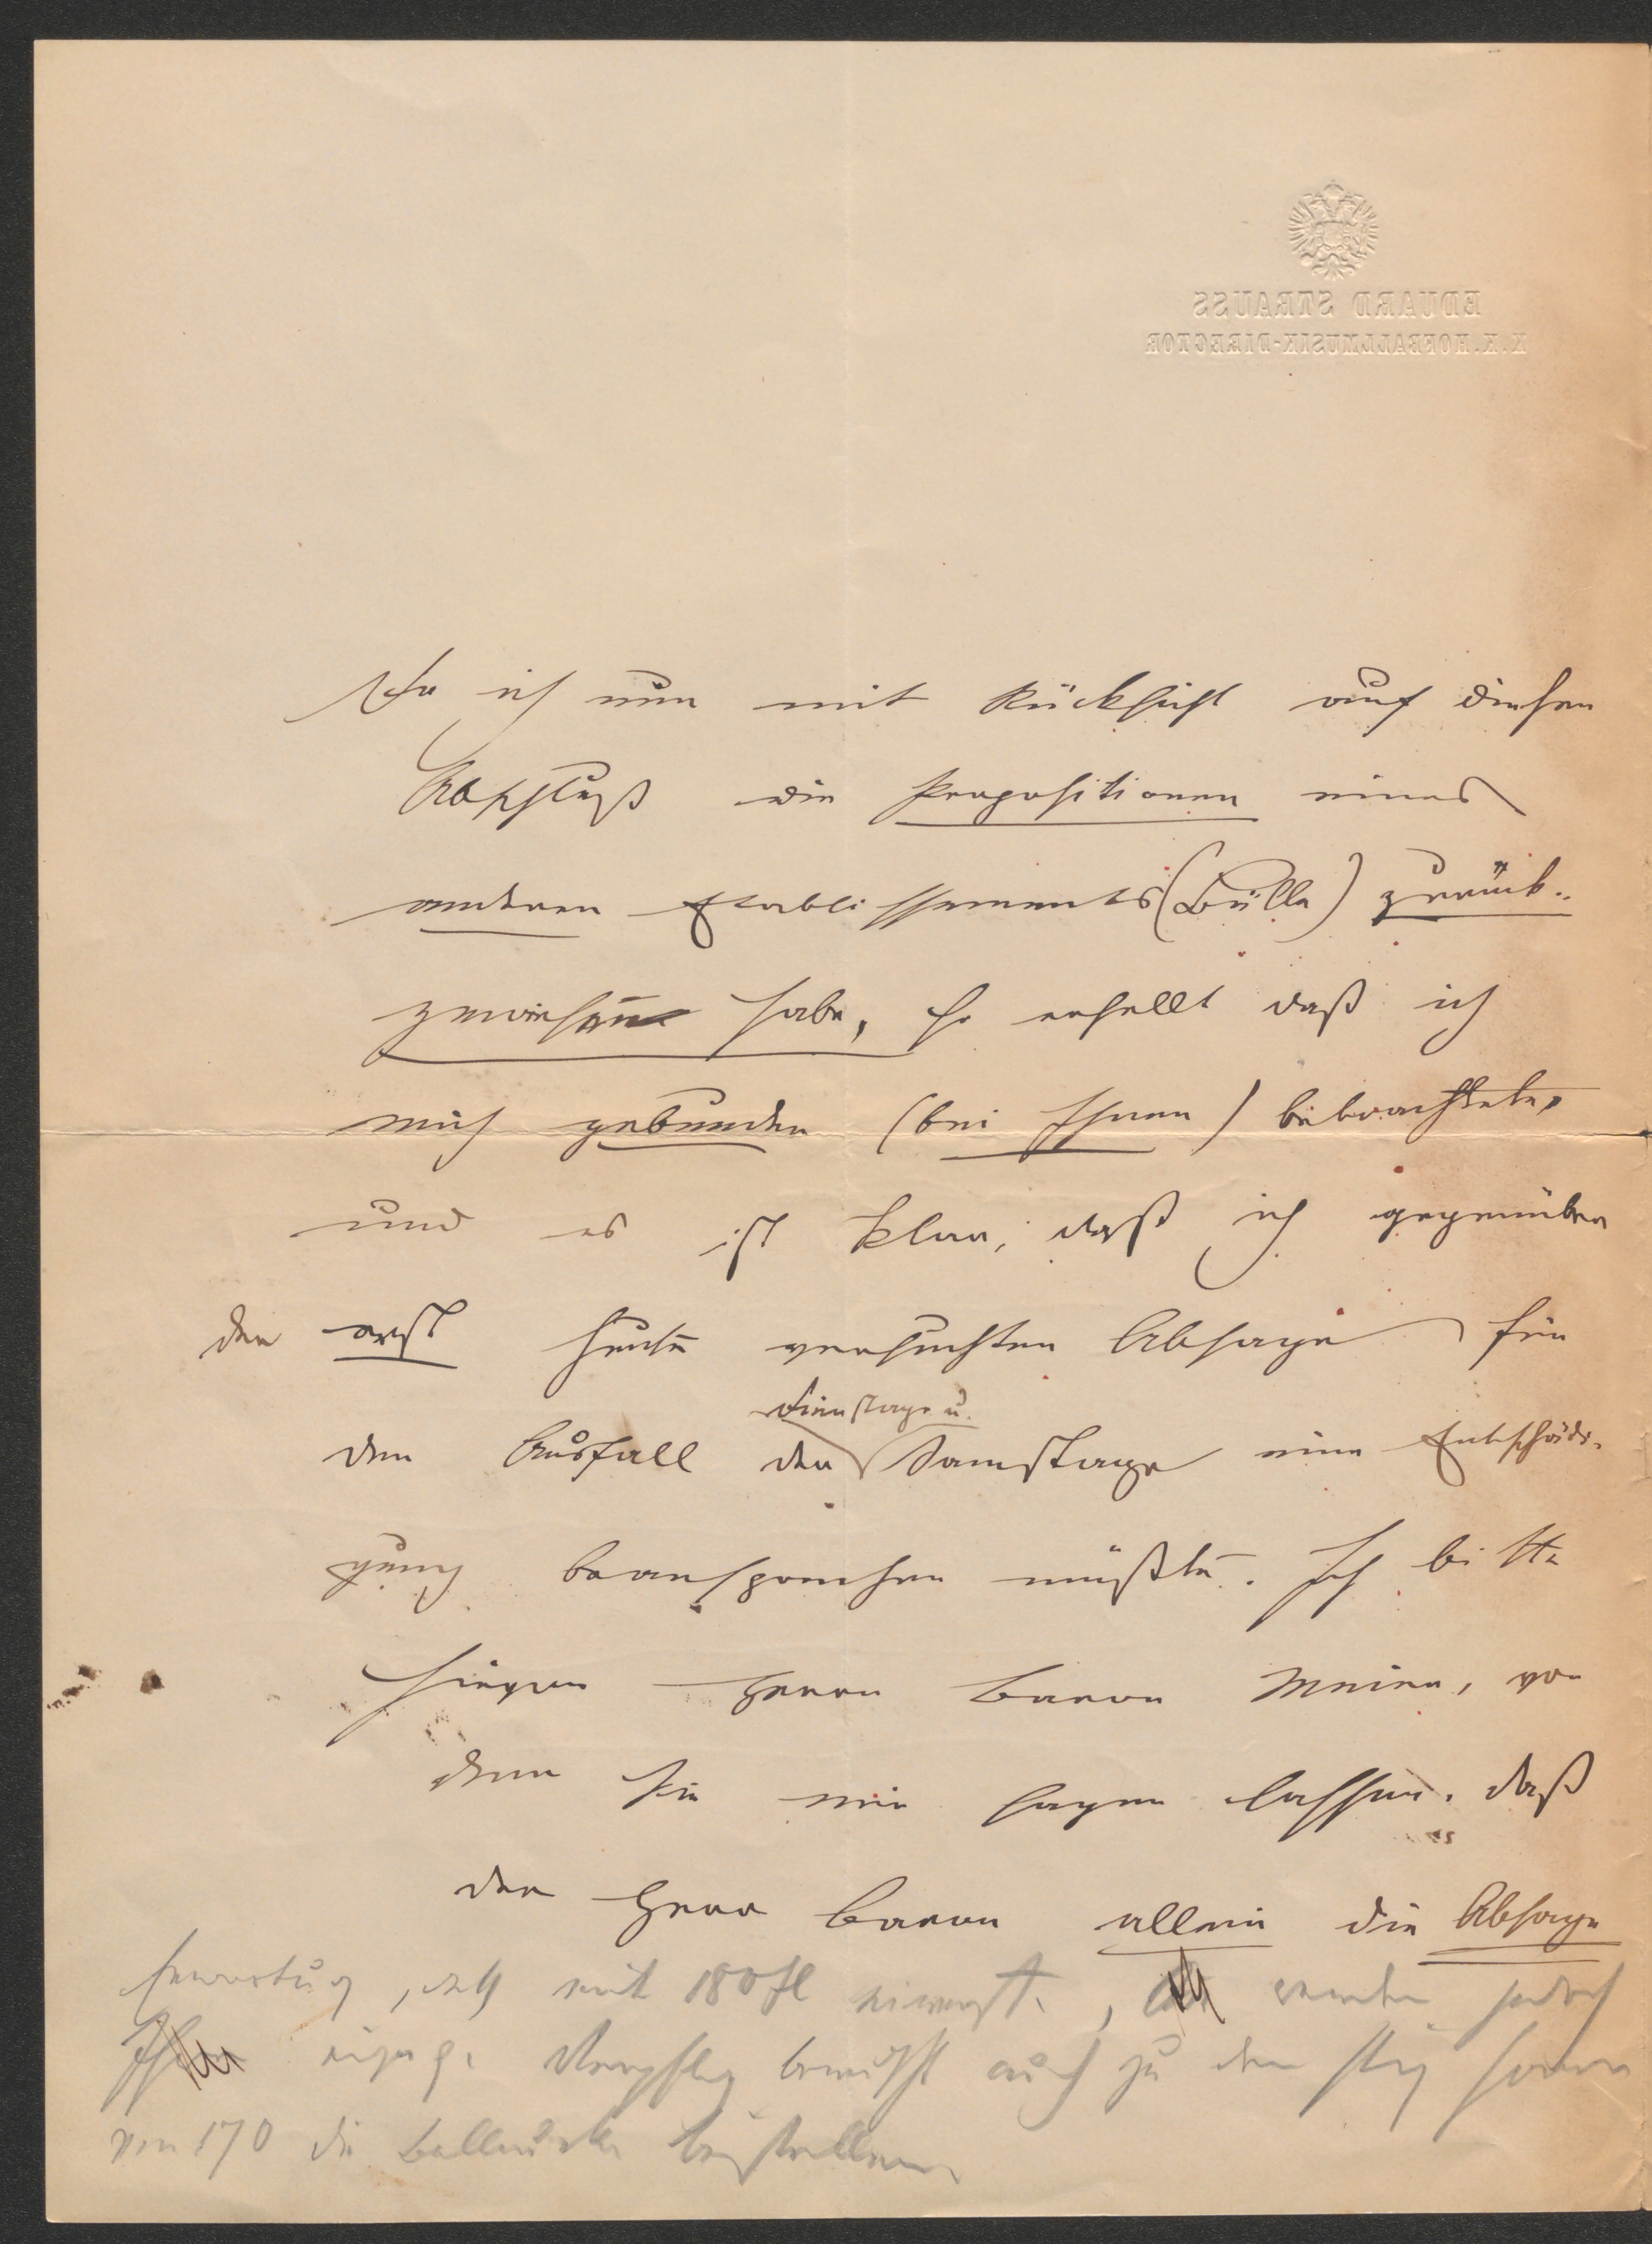 EDUARD STRAUSS
K.K. HOFBALLMUSIK-DIRECTOR
Da ich nun mit Rücksicht auf diesen
Abschluß die Propositionen eines
anderen Etablissements zurück-
gewiesen habe, so erhellt daß ich
mich gebunden (bei Ihnen) betrachtete,
und es ist klar, daß ich gegenüber
der erst heute versuchten Absage für
den Ausfall der Samstage eine Entschädi-
Dienstage u.
gung beanspruchen müßte. Ich bitte
hierin Herrn Baron, von
dem Sie mir sagen lassen, daß
der Herr Baron allein die Absage
mit 180 fl jedoch
auch zu dem
von 170 die Ballmusik beistellen